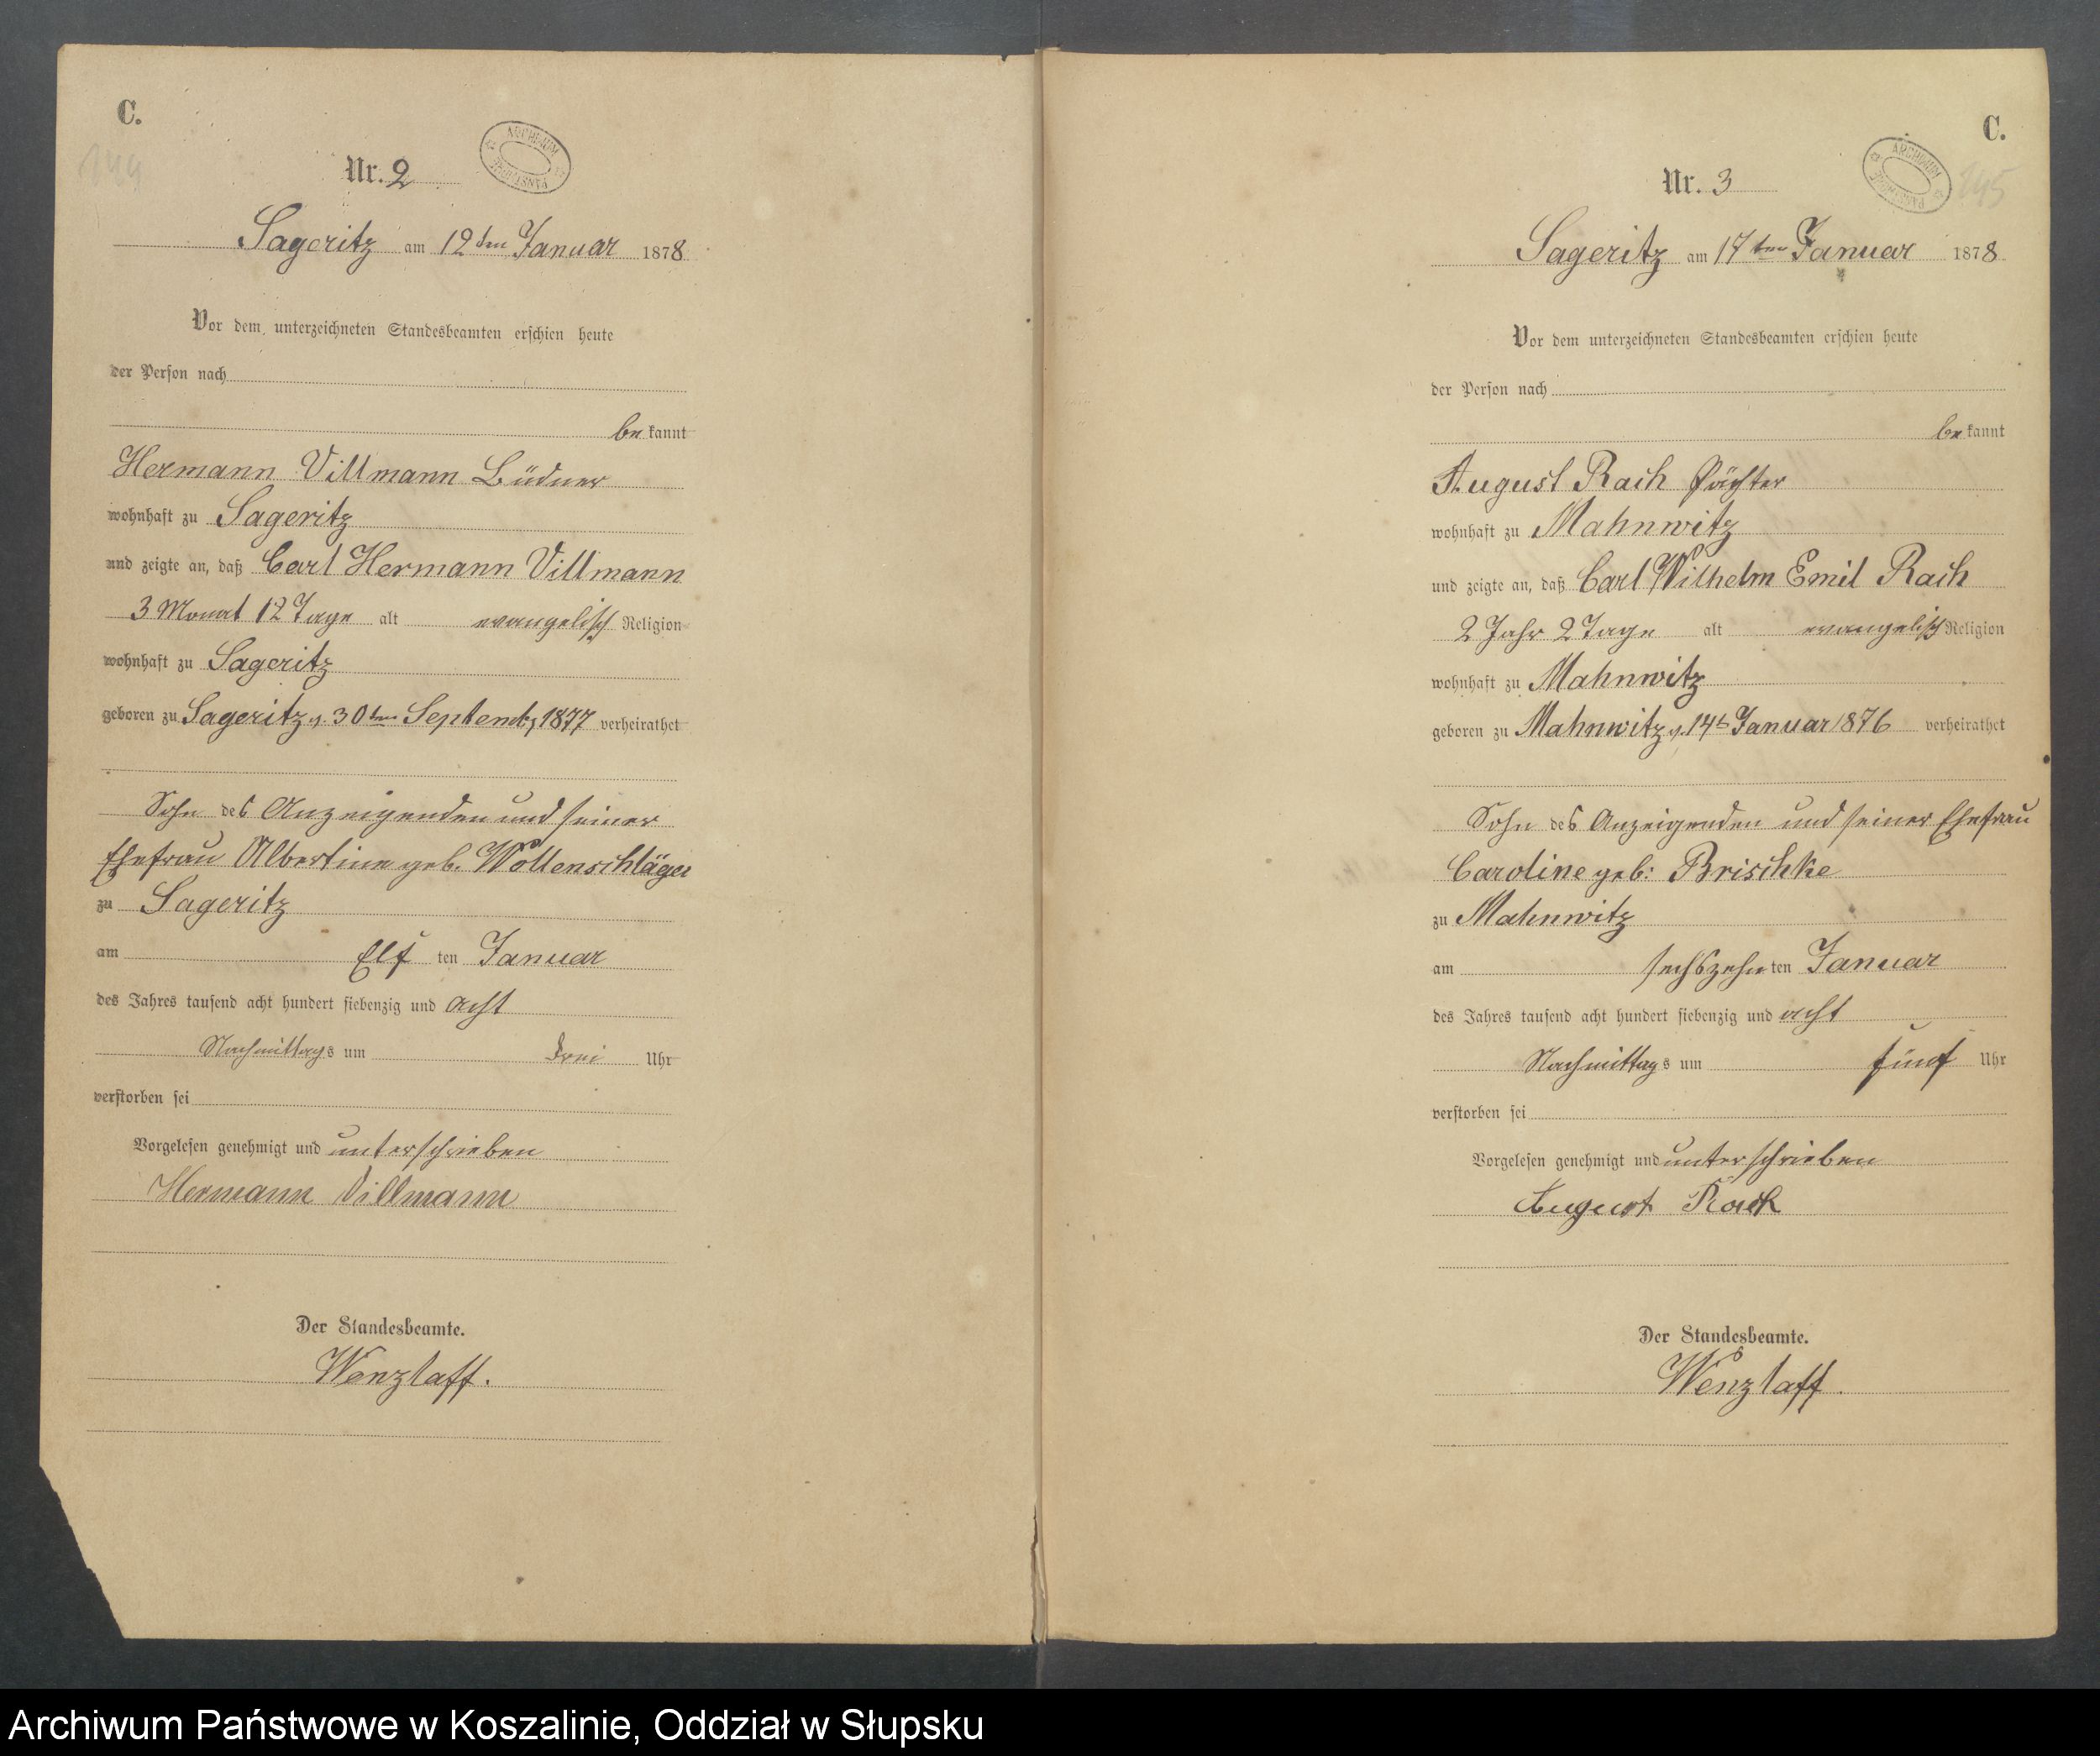 C.
144
Nr. 2
ARCHIWUM PAŃSTWOWE
Sageritz am 12ten Januar 1878
Vor dem unterzeichneten Standesbeamten erschien heute
der Person nach
be kannt
Hermann Villmann Büdner
wohnhaft zu Sageritz
und zeigte an, daß Carl Hermann Villmann
3 Monat 12 Tage alt evangelisch Religion
wohnhaft zu Sageritz
geboren zu Sageritz d. 30ten Septembr 1877 verheirathet
Sohn des Anzeigenden und seiner
Ehefrau Albertine geb. Wollenschläger
zu Sageritz
am Elf ten Januar
des Jahres tausend acht hundert siebenzig und acht
Nachmittags um drei Uhr
verstorben sei
Vorgelesen genehmigt und unterschrieben
Hermann Villmann
Der Standesbeamte.
Wenzlaff.
C.
145
Nr. 3
ARCHIWUM PAŃSTWOWE
Sageritz am 17ten Januar 1878
Vor dem unterzeichneten Standesbeamten erschien heute
der Person nach
be kannt
August Rach Pächter
wohnhaft zu Mahnwitz
und zeigte an, daß Carl Wilhelm Emil Rach
2 Jahr 2 Tage alt evangelisch Religion
wohnhaft zu Mahnwitz
geboren zu Mahnwitz d. 14t Januar 1876 verheirathet
Sohn des Anzeigenden und seiner Ehefrau
Caroline geb: Brischke
zu Mahnwitz
am sechszehn ten Januar
des Jahres tausend acht hundert siebenzig und acht
Nachmittags um fünf Uhr
verstorben sei
Vorgelesen genehmigt und unterschrieben
August Rach
Der Standesbeamte.
Wenzlaff.
Archiwum Państwowe w Koszalinie, Oddział w Słupsku